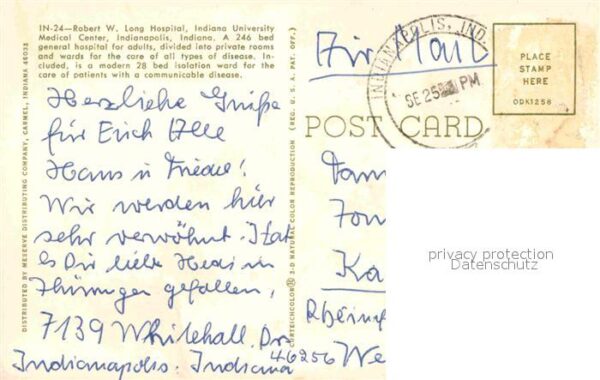 IN-24—Robert W. Long Hospital, Indiana University
Medical Center, Indianapolis, Indiana. A 246 bed
general hospital for adults, divided into private rooms
and wards for the care of all types of disease. In-
cluded, is a modern 28 bed isolation ward for the
care of patients with a communicable disease.
Herzliche Grüße
für Erich
Hans u Friedel!
Wir werden hier
sehr verwöhnt. Hat
es Dir liebe Hedi in
Thüringen gefallen,
7139 Whitehall. Dr
Indianapolis. Indiana 46256
DISTRIBUTED BY MESERVE DISTRIBUTING COMPANY, CARMEL, INDIANA 46032
CURTEICHCOLOR® 3-D NATURAL COLOR REPRODUCTION (REG. U.S.A. PAT. OFF.)
Air Mail
INDIANAPOLIS, IND.
SE 25 PM
PLACE
STAMP
HERE
ODK1258
POST CARD
Ka
Rheinp
We
privacy protection
Datenschutz